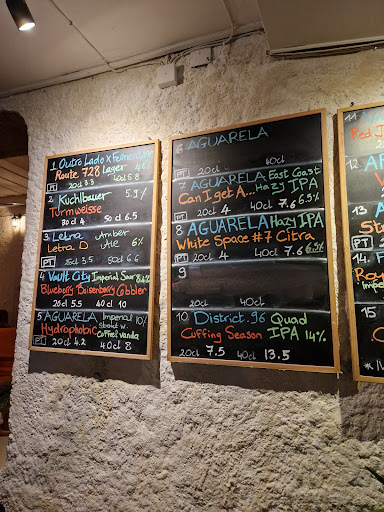 1 Outro Lado x Fermentage
Route 728 Lager 4.8%
PT 20cl 3.3 40cl 5.8
2 Kuchlbauer 5.9%
Turmweisse
30cl 4 50cl 6.5
3 Letra Amber
Letra D Ale 6%
PT 25cl 3.5 50cl 6.6
4 Vault City Imperial Sour 8.4%
Blueberry Boisenberry Cobbler
20cl 5.5 40cl 10
5 AGUARELA Imperial 10%
Hydrophobic Stout w.
Coffee & Vanilla
PT 20cl 4.2 40cl 8
6 AGUARELA
PT 20cl 40cl
7 AGUARELA East Coast
Can I get A... Hazy IPA
PT 20cl 4 40cl 7.6 6.5%
8 AGUARELA Hazy IPA
White Space #7 Citra
PT 20cl 4 40cl 7.6 6.5%
9
20cl 40cl
10 District 96 Quad
Cuffing Season IPA 14%
20cl 7.5 40cl 13.5
11
Red
PT
12
13
PT
14.
15